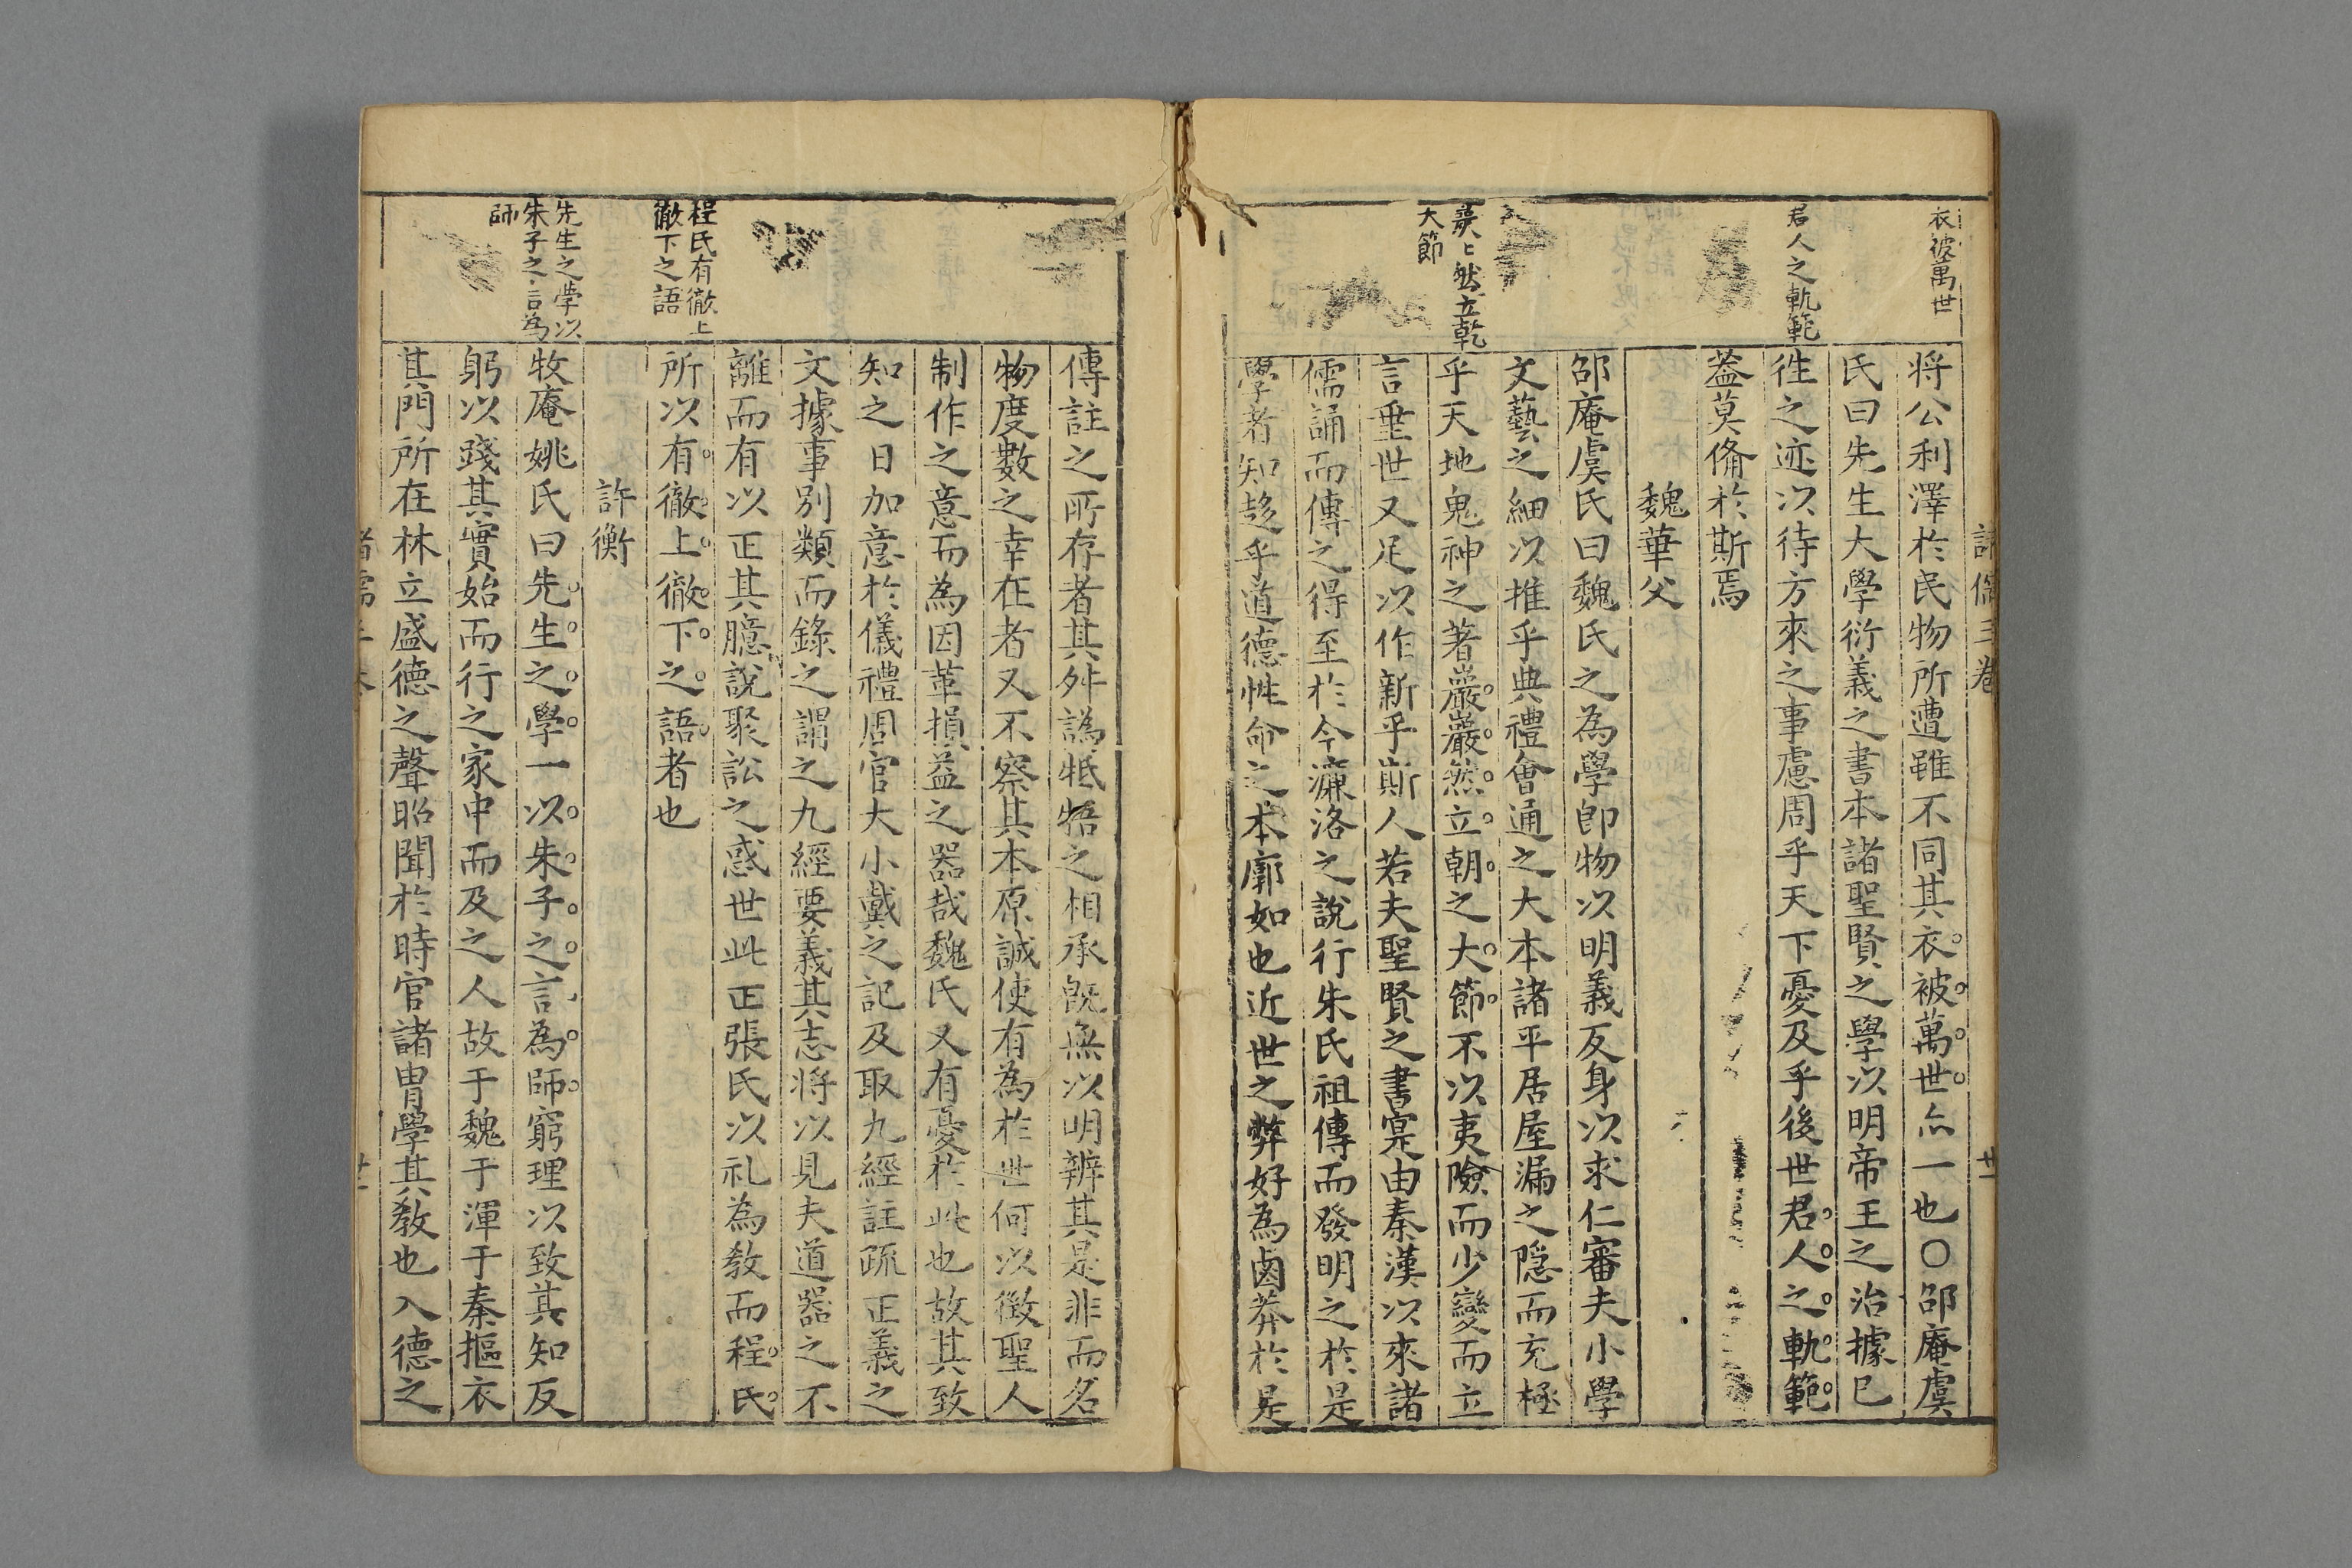 衣被萬世
君人之軌範
大節
將公利澤於民物所遭雖不同其衣被萬世亦一也〇邵庵虞
氏曰先生大學衍義之書本諸聖賢之學以明帝王之治據已
徃之迹以待方來之事慮周乎天下憂及乎後世君人之軌範
葢莫俻於斯焉
魏華父
邵庵虞氏曰魏氏之為學卽物以明義反身以求仁審夫小學
文藝之細以推乎典禮會通之大本諸平居屋漏之隠而充極
乎天地鬼神之著巖巖然立朝之大節不以夷險而少變而立
言垂世又足以作新乎斯人若夫聖賢之書寔由秦漢以來諸
儒誦而傳之得至於今濂洛之說行朱氏祖傳而發明之於是
學者知趍乎道德性命之本廓如也近世之弊好為鹵莽於是
程氏有徹上
徹下之語
先生之學以
朱子之言為
師
傳註之所存者其舛譌牴牾之相承旣無以明辨其是非而名
物度數之幸在者又不察其本原誠使有為於世何以徴聖人
制作之意而為因革損益之器哉魏氏又有憂於此也故其致
知之日加意於儀禮周官大小戴之記及取九經註疏正義之
文據事別類而錄之謂之九經要義其志将以見夫道噐之不
離而有以正其臆說聚訟之惑世此正張氏以礼為敎而程氏
所以有徹上徹下之語者也
許衡
牧庵姚氏曰先生之學一以朱子之言為師窮理以致其知反
躬以踐其實始而行之家中而及之人故于魏于渾于秦摳衣
其門所在林立盛德之聲昭聞於時官諸胄學其敎也入德之